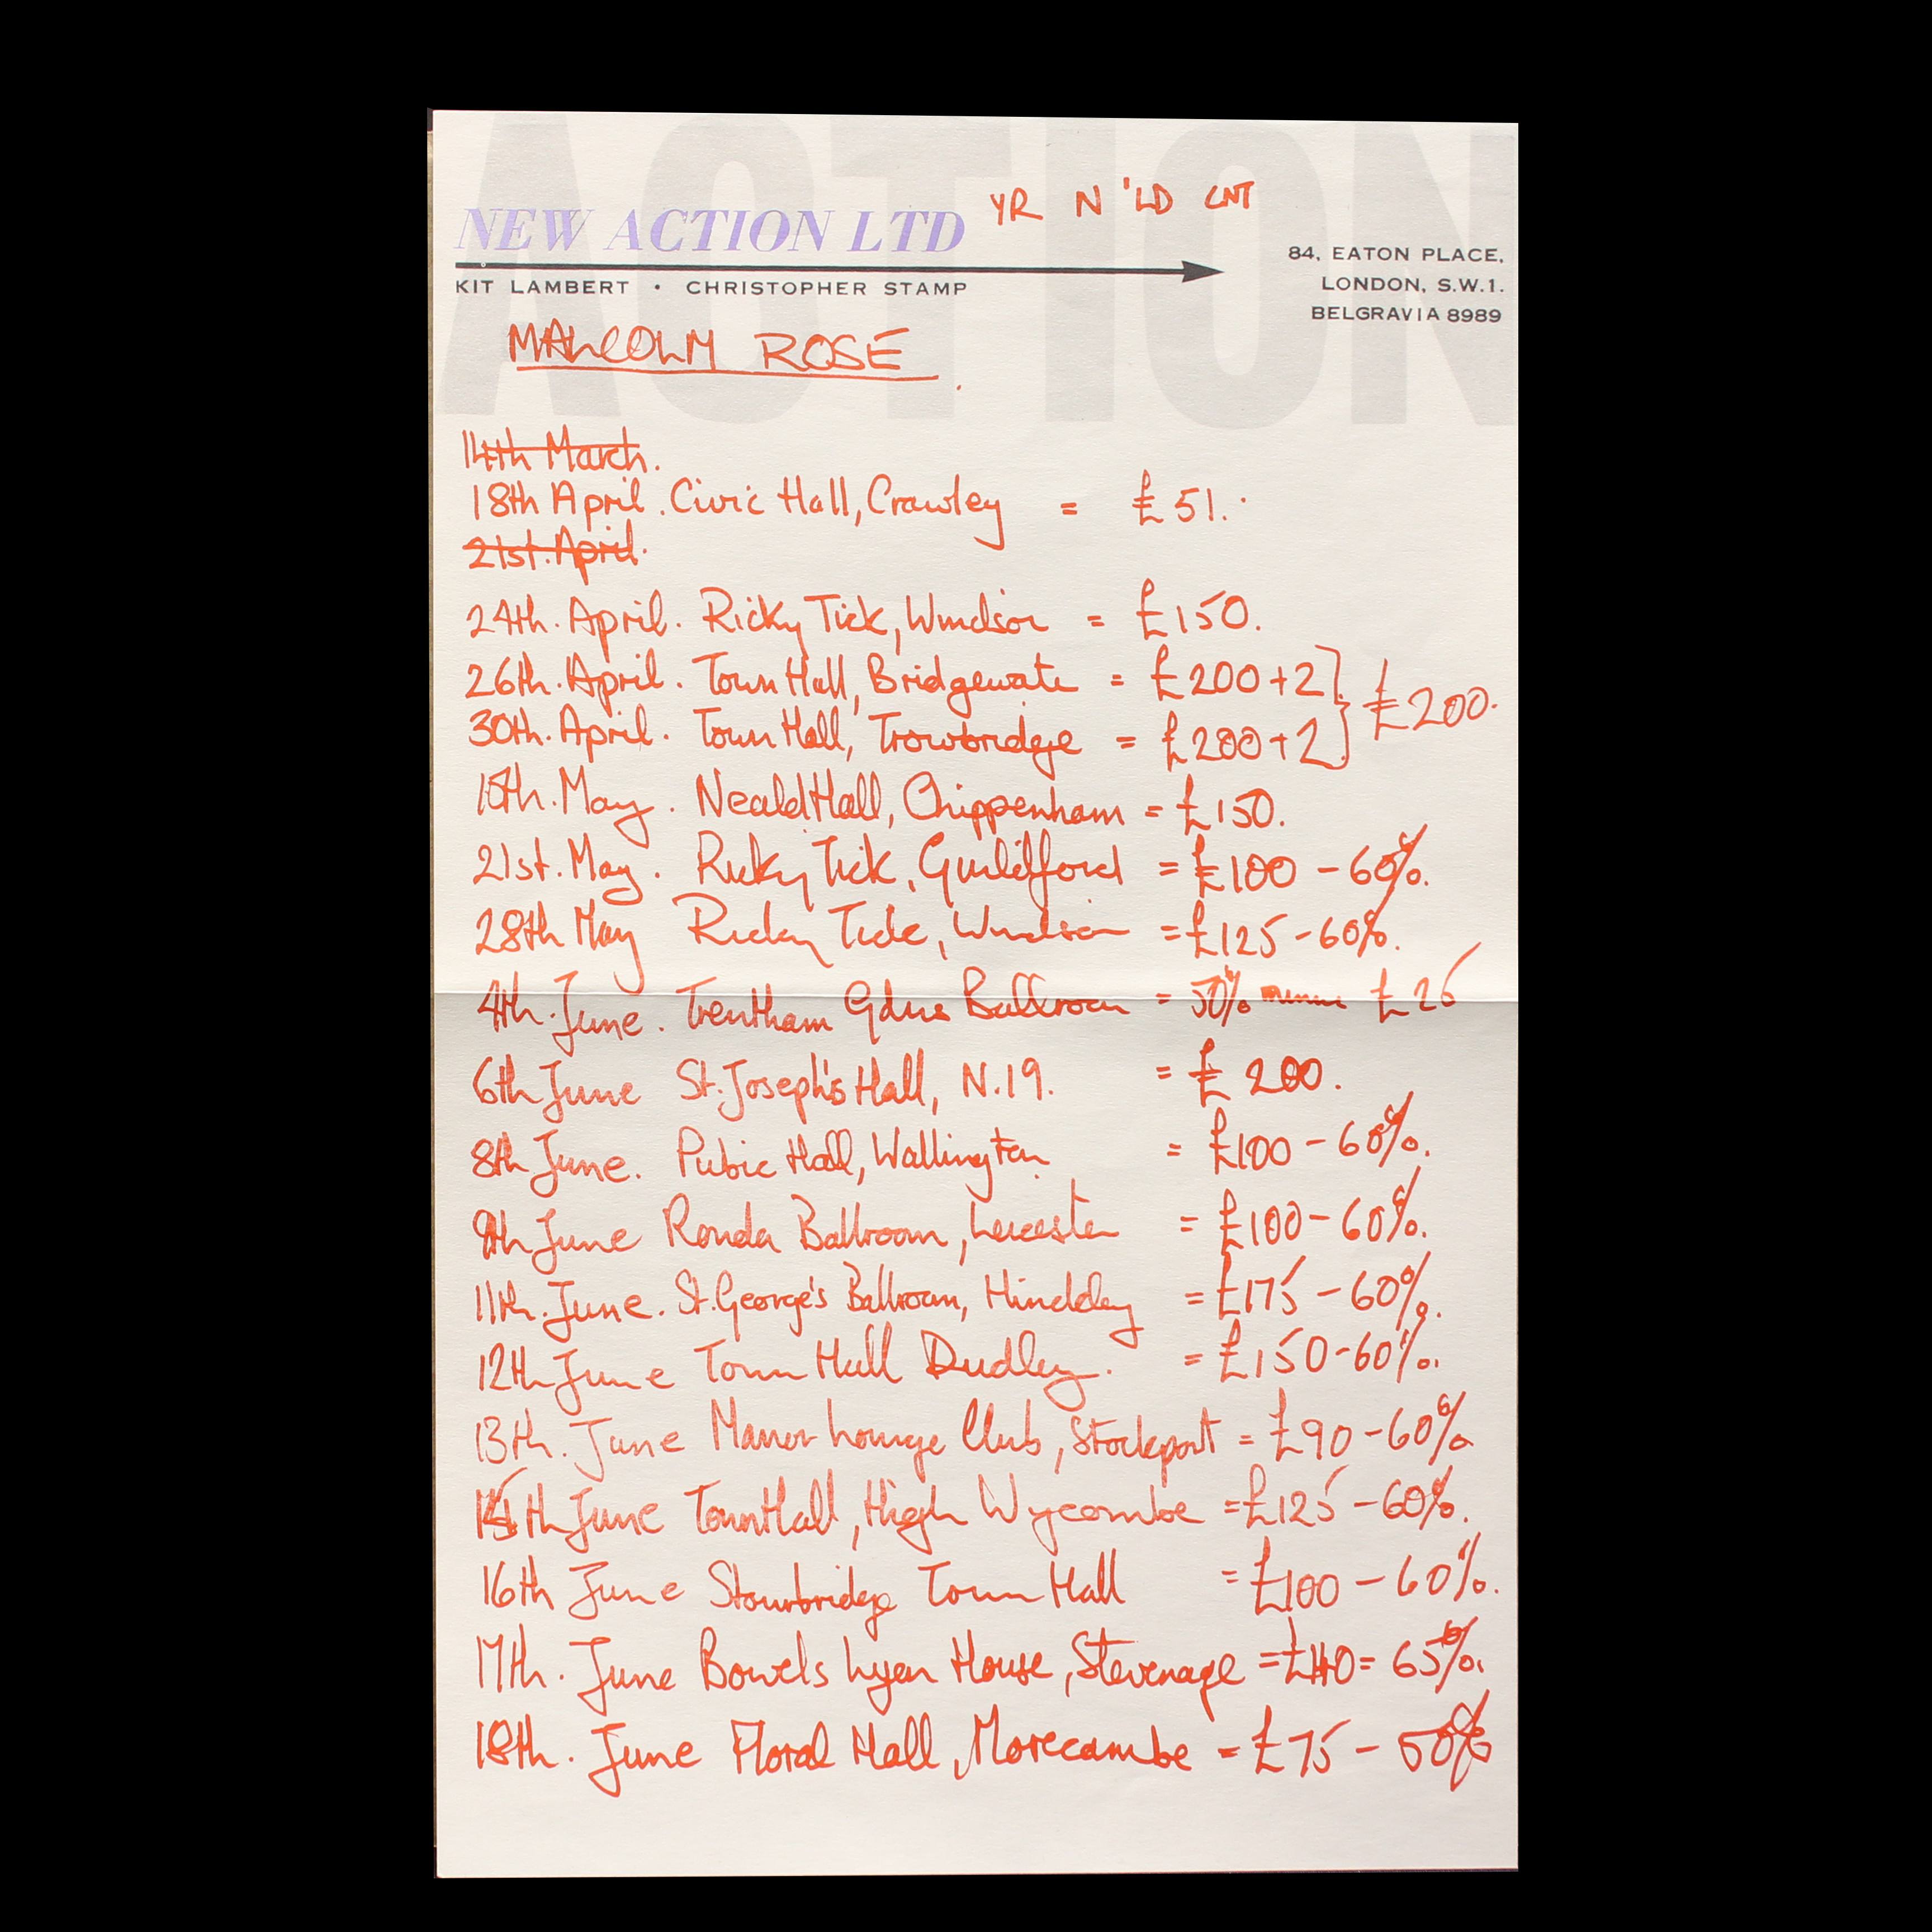 ACTION
YR N 'LD CNT
NEW ACTION LTD
KIT LAMBERT • CHRISTOPHER STAMP
84, EATON PLACE,
LONDON, S.W.1.
BELGRAVIA 8989
MALCOLM ROSE
14th March.
18th April. Civic Hall, Crawley = £51.
21st. April.
24th. April. Ricky Tick, Windsor = £150.
26th. April. Town Hall, Bridgewate = £200+2 } £200.
30th. April. Town Hall, Trowbridge = £200+2
15th. May. Neald Hall, Chippenham = £150.
21st. May. Ricky Tick, Guildford = £100 - 60%.
28th May Ricky Tick, Windsor = £125 - 60%.
4th. June. Trentham Gdns Ballroom = 50% minus £25
6th June St. Joseph's Hall, N.19. = £200.
8th June. Pubic Hall, Wallington = £100 - 60%.
9th June Ronda Ballroom, Leicester = £100 - 60%.
11th. June. St. George's Ballroom, Hinckley = £175 - 60%.
12th June Town Hall Dudley. = £150 - 60%.
13th. June Manor Lounge Club, Stockport = £90 - 60%
15th June Town Hall, High Wycombe = £125 - 60%.
16th June Stourbridge Town Hall = £100 - 60%.
17th. June Bowels Lyen House, Stevenage = £110 = 65%.
18th. June Floral Hall, Morecambe = £75 - 50%